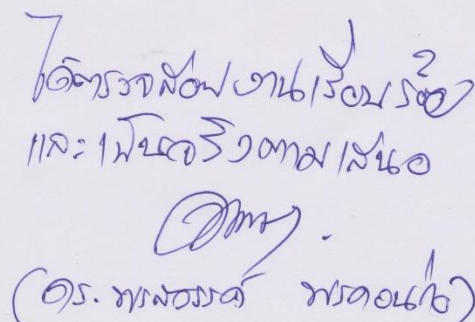 ได้ตรวจสอบงานเรียบร้อย
และเป็นจริงตามเสนอ
(ดร. พรสวรรค์